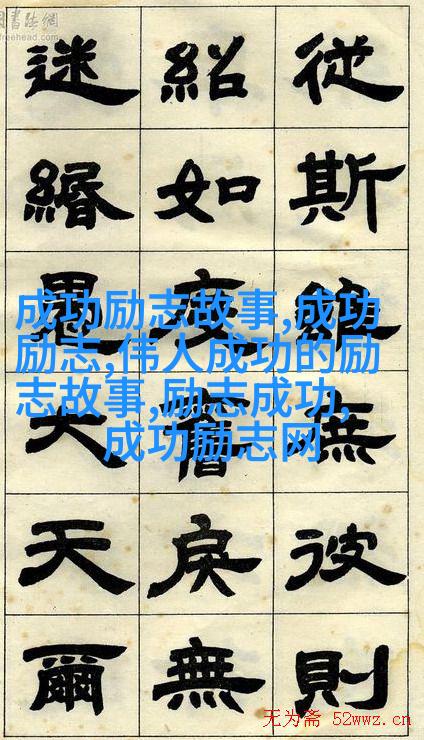 書法網
freehead.com
從斯無彼則
紹如戾無
迷緡天爾
成功励志故事,成功
励志,伟人成功的励
志故事,励志成功,
成功励志网
无为斋 52wwz.cn